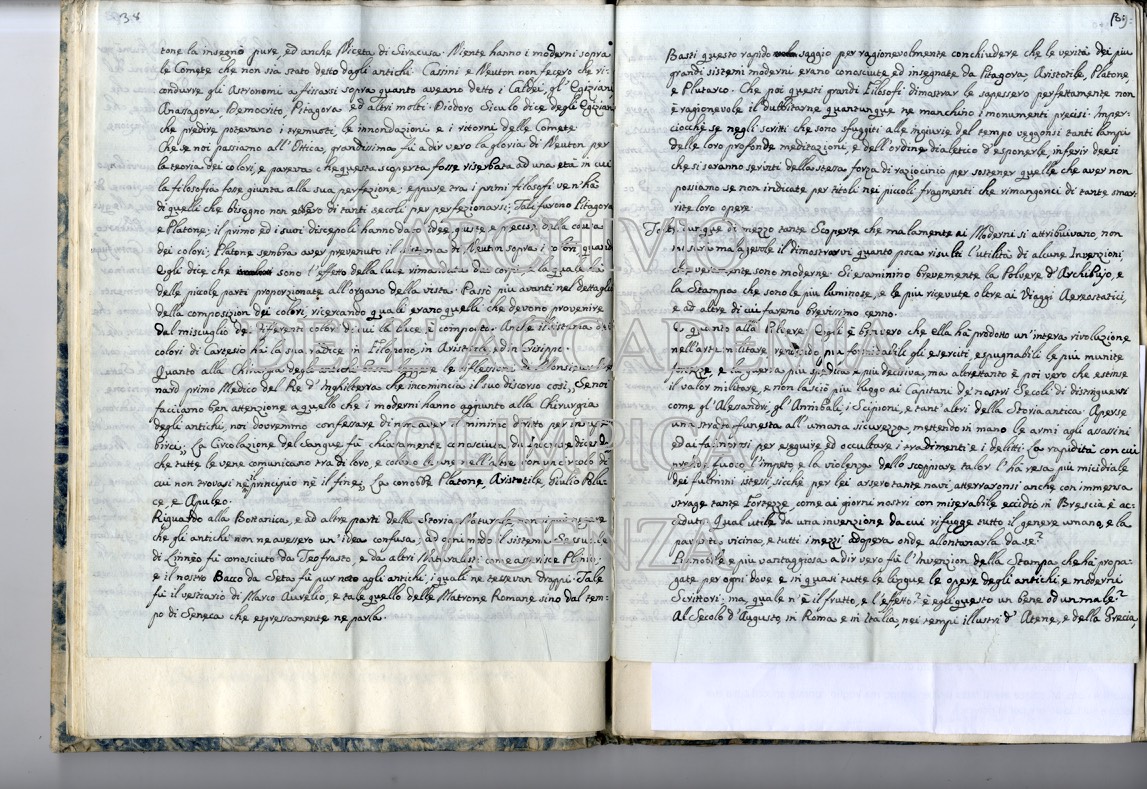 34
tone la insegnò pure, ed anche Niceta di Siracusa. Niente hanno i moderni sopra
le Comete che non sia stato detto dagli antichi. Cassini e Neuton non fecero che ri:
condurre gli Astronomi a fissarsi sopra quanto aveano detto i Caldei, gl'Egiziani
Anassagora, Democrito, Pitagora ed altri molti. Diodoro Siculo dice degli Egiziani
che predire potevano i tremuoti, le innondazioni e i ritorni delle Comete.
Che se noi passiamo all'Ottica, grandissima fù a dir vero la gloria di Neuton per
la teoria dei colori, e pareva che questa scoperta fosse riserbata ad una età in cui
la filosofia fosse giunta alla sua perfezione; eppure tra i primi filosofi ve n'ha
di quelli che bisogno non ebbero di tanti secoli per perfezionarsi; Tali furono Pitagora
e Platone; il primo ed i suoi discepoli hanno dato idee giuste e precise della causa
dei colori; Platone sembra aver prevenuto il sistema di Neutin sopra i colori quando
Egli dice che sono l'effetto della luce rimandata dai corpi e la quale ha
delle picole parti proporzionate all'organo della vista. Passò più avanti nel dettaglio
della composizion dei colori, ricercando quali erano quelli che devono provenire
dal miscuglio de' differenti colori di cui la luce è composta. Anche il sistema dei
colori di Cartesio ha la sua radice in Filopono, in Aristotile, ed in Crisippo.
Quanto alla Chirurgia degli antichi le riflessioni di Monsieur Ber
nard primo Medico del Re d'Inghilterra che incomincia il suo discorso così, Se noi
facciamo ben attenzione a quello che i moderni hanno aggiunto alla Chirurgia
degli antichi, noi dovremmo confessare di non aver il minimo diritto per insu
birci,, La Circolazione del Sangue fù chiaramente conosciuta da Ippocrate dicendo
che tutte le vene comunicano tra di loro, e colano le une nell'altre con un circolo di
cui non trovasi nè il principio nè il fine; La conobbe Platone, Aristotile, Giulio Pollu:
ce, e Apuleo.
Riguardo alla Botanica, e ad altre parti della Storia Naturale non si può negare
che gli antichi non ne avessero un'idea confusa; ad ogni modo il sistema Sessuale
di Linnèo fù conosciuto da Teofrasto, e da altri Naturalisti come asserisce Plinio;
e il nostro Baco da Seta fù pur noto agli antichi, i quali ne tessevan drappi. Tale
fù il vestiario di Marco Aurelio, e tale quello delle Matrone Romane sino dal tem:
po di Seneca che espressamente ne parla.
35
Basti questo rapido saggio per ragionevolmente conchiudere che le verità dei più
grandi sistemi moderni erano conosciute ed insegnate da Pitagora, Aristotile, Platone,
e Plutarco. Che poi questi grandi Filosofi dimostrar le sapessero perfettamente non
è ragionevole il dubbitarne quantunque ne manchino i monumenti precisi. Imper:
ciocchè se negli scritti che sono sfuggiti alle ingiurie del tempo veggonsi tanti lampi
delle loro profonde meditazioni, e dell'ordine dialetico d'esponerle, inferir deesi
che si saranno serviti della stessa forza di raziocinio per sostener quelle che aver non
possiamo se non indicate per titoli nei piccoli fragmenti che rimangonci di tante smar
rite loro opere.
Tolte dunque di mezzo tante Scoperte che malamente ai Moderni si attribuivano, non
mi sarà malagevole il dimostrarvi quanto poca risulti l'utilità di alcune Invenzioni,
che veramente sono moderne. Si esaminino brevemente la Polvere d'Archibujo, e
la Stampa che sono le più luminose, e le più ricevute oltre ai Viaggi Aereostatici,
e ad altre di cui faremo brevissimo cenno.
E quanto alla Polvere Egli è ben vero che ella ha prodotto un'intera rivoluzione
nell'arte militare rendendo più formidabili gli eserciti, espugnabili le più munite
fortezze, e la guerra più spedita e più decisiva, ma altrettanto è poi vero che estinse
il valor militare, e non lasciò più luogo ai Capitani de' nostri Secoli di distinguersi
come gl'Alesandri, gl'Annibali, i Scipioni, e tant'altri della Storia antica. Aperse
una strada funesta all'umana sicurezza, mettendo in mano le armi agli assassini
ed ai facinorosi per eseguire ed occultare i tradimenti e i delitti. La rapidità con cui
prende fuoco, l'impeto, e la violenza dello scoppiare talor l'ha resa più micidiale
dei fulmini stessi, sicchè per lei arsero tante navi, atterraronsi anche con immensa
strage tante Fortezze, come ai giorni nostri con miserabile eccidio in Brescia è ac:
caduto. Qual utile da una invenzione da cui rifugge tutto il genere umano, e la
paventa vicina, e tutti i mezzi addopera onde allontanarla da se?
Più nobile, e più vantaggiosa a dir vero fù l'Invenzion della Stampa che ha propa:
gate per ogni dove e in quasi tutte le lingue le opere degli antichi, e moderni
Scrittori: ma, quale n'è il frutto, e l'effetto? è egli questo un bene od un male?
Al Secolo d'Augusto, in Roma e in Italia, nei tempi illustri d'Atene, e della Grecia,
ARCHIVIO
DELL'ACCADEMIA
OLIMPICA
VICENZA